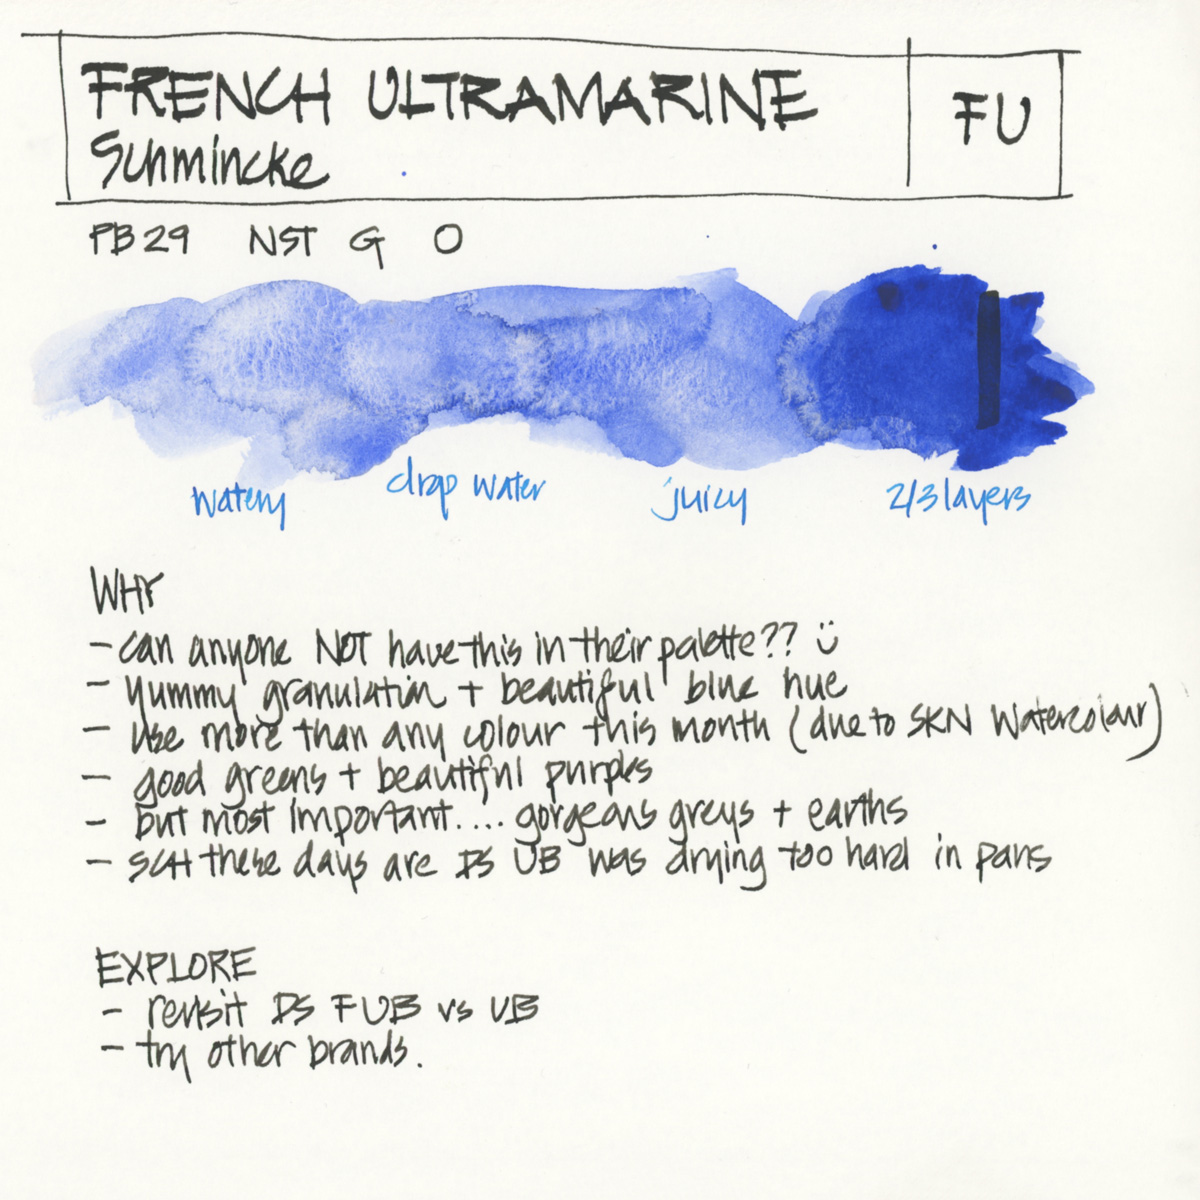 FRENCH ULTRAMARINE
FU
Schmincke
PB29 NST G O
watery drop water juicy 2/3 layers
WHY
- can anyone NOT have this in their palette??
- yummy granulation + beautiful blue hue
- use more than any colour this month (due to SKN Watercolour)
- good greens + beautiful purples
- but most important.... gorgeous greys + earths
- SCH these days are DS UB was drying too hard in pans
EXPLORE
- revisit DS FUB vs UB
- try other brands.